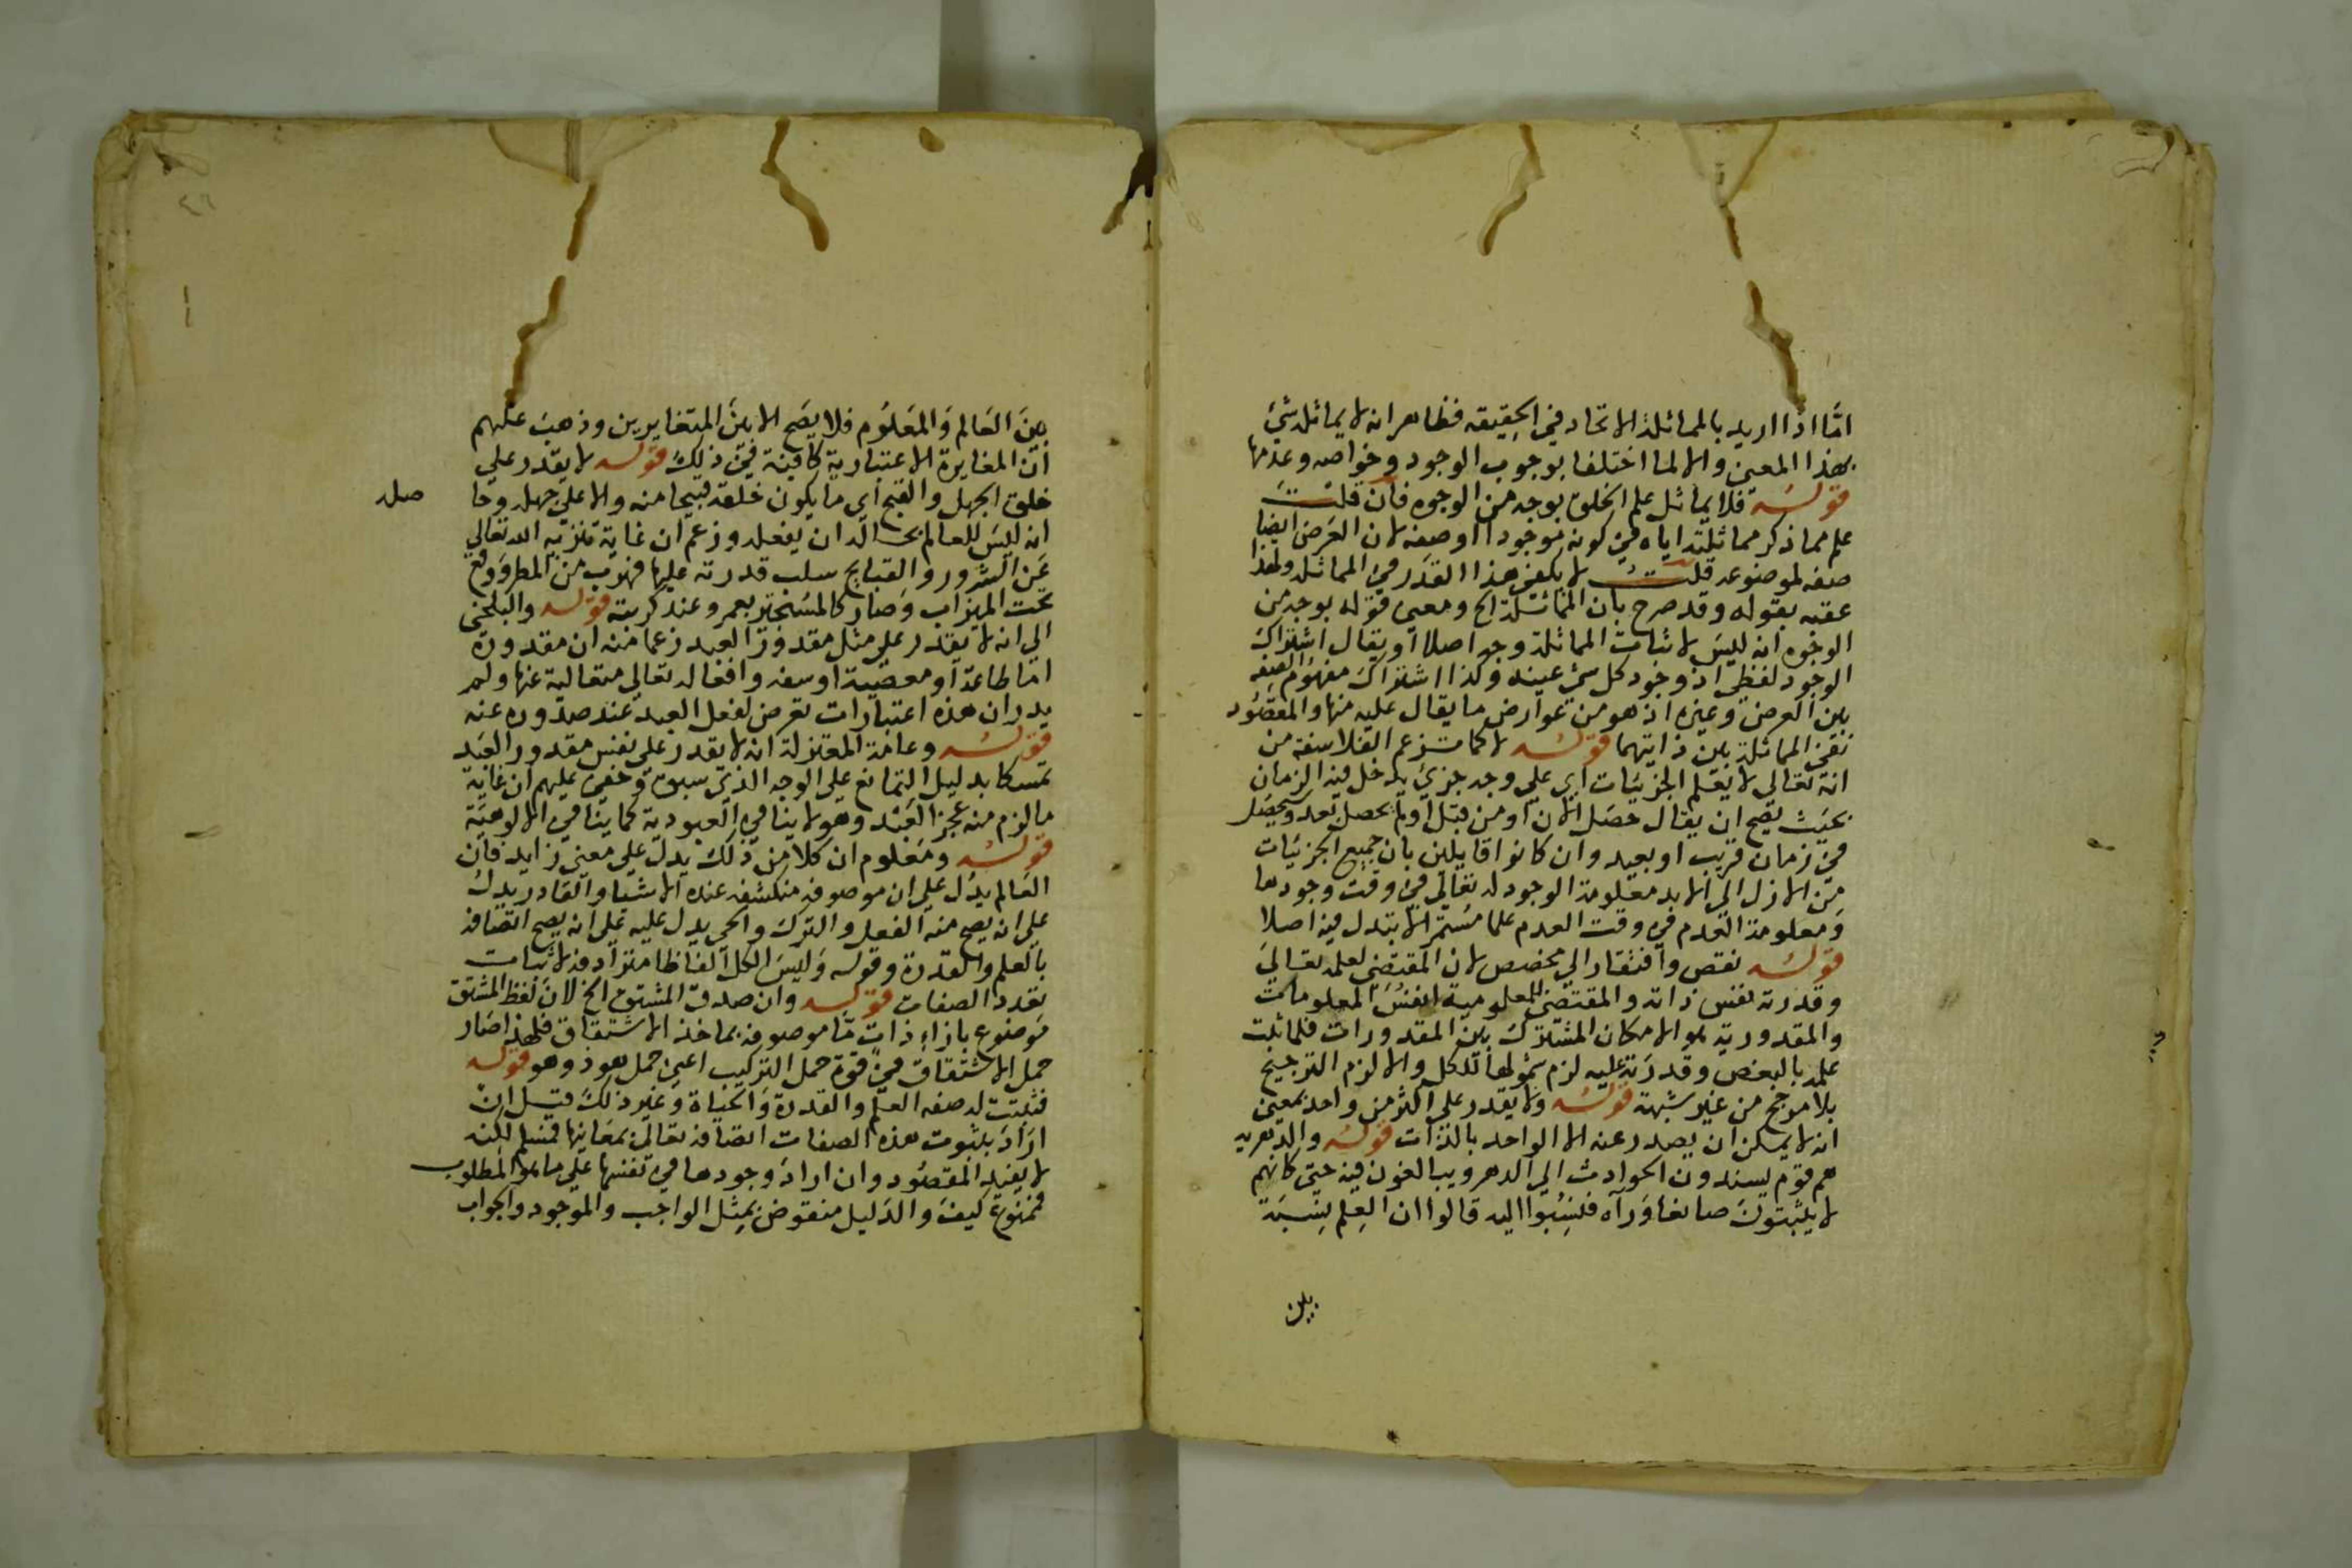 امّا اذا اريد بالمماثلة الاتحاد في الحقيقه فظاهر انه لا يماثله شيئ
بهذا المعنى والا لما اختلفا بوجوب الوجود وخواصه وعدمها
قوله فلا يماثل علم الخلق بوجه من الوجوه فان قلت
علم مما ذكر مماثلته اياه في كونه موجودا او صفة لان العرض ايضا
صفه لموضوعه قلت لا يكفي هذا القدر في المماثله ولهذا
عقبه بقوله وقد صرح بان المماثلة الخ ومعنى قوله بوجه من
الوجوه انه ليس لاثبات المماثلة وجه اصلا او يقال اشتراك
الوجود لفظي اذ وجود كل شئ عينه وكذا اشتراك مفهوم الصفه
بين العرض وغيره اذ هو من عوارض ما يقال عليه منها والمقصود
نفي المماثلة بين ذاتيهما قوله لا كما تزعم الفلاسفة من
انه تعالى لا يعلم الجزئيات اي على وجه جزئي يدخل فيه الزمان
بحيث يصح ان يقال حصل الان او من قبل او لم يحصل بعد وسيحصل
في زمان قريب او بعيد وان كانوا قايلين بان جميع الجزئيات
من الازل الى الابد معلومة الوجود له تعالى في وقت وجودها
ومعلومة العدم في وقت العدم علما مستمرا لا يتبدل فيه اصلا
قوله نقص وافتقار الى مخصص لان المقتضي لعلمه تعالى
وقدرته نفس ذاته والمقتضي للمعلومية انفس المعلومات
والمقدورية هو الامكان المشترك بين المقدورات فلما ثبت
علمه بالبعض وقدرته عليه لزم شمولهما للكل والا لزم الترجيح
بلا مرجح من غير شبهة قوله ولا يقدر على اكثر من واحد بمعنى
انه لا يمكن ان يصدر عنه الا الواحد بالذات قوله والدهريه
هم قوم يسندون الحوادث الى الدهر ويبالغون فيه حتى كانهم
لا يثبتون صانعا وراه فنسبوا اليه قالوا ان العلم نسبة
بين
بين العالم والمعلوم فلا يصح الا بين المتغايرين وذهب عنهم
ان المغايرة الاعتبارية كافية في ذلك قوله لا يقدر على
خلق الجهل والقبح اي ما يكون خلقه قبيحا منه والا على جهله وحا
صله
انه ليس للعالم بحاله ان يفعله وزعم ان غاية تنزيه الله تعالى
عن الشرور والقبايح سلب قدرته عليها فهرب من المطر ووقع
تحت الميزاب وصار كالمستجير بعمرو عند كربته قوله والبلخي
الى انه لا يقدر على مثل مقدور العبد زعما منه ان مقدوره
اما طاعة او معصية او سفه وافعاله تعالى متعالية عنها ولم
يدر ان هذه اعتبارات تعرض لفعل العبد عند صدوره عنه
قوله وعامة المعتزلة انه لا يقدر على نفس مقدور العبد
تمسكا بدليل التمانع على الوجه الذي سبق وخفي عليهم ان غاية
ما لزم منه عجز العبد وهو لا ينافي العبودية كما ينافي الالوهية
قوله ومعلوم ان كلا من ذلك يدل على معنى زايد فان
العالم يدل على ان موصوفه منكشفه عنده الاشيا والقادر يدل
على انه يصح منه الفعل والترك والحي يدل عليه على انه يصح اتصافه
بالعلم والقدرة وقوله وليس الكل الفاظا مترادفة لاثبات
تعدد الصفات قوله وان صدق المشتق الخ لان لفظ المشتق
موضوع بازاء ذات مّا موصوفه بماخذ الاشتقاق فلهذا صار
حمل الاشتقاق في قوة حمل التركيب اعني حمل هو ذو هو قوله
فثبتت له صفه العلم والقدرة والحياة وغير ذلك قيل ان
اراد بثبوت هذه الصفات اتصافه تعالى بمعانيها فمسلم لكنه
لا يفيد المقصود وان اراد وجودها في نفسها على ما هو المطلوب
فممنوع كيف والدليل منقوض بمثل الواجب والموجود والجواب